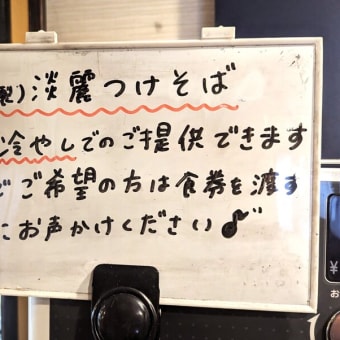 製)淡麗つけそば
冷やしでのご提供できます
ご希望の方は食券を渡す
にお声かけください♪
¥
お